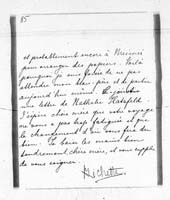 85
et probablement encore à
pour arranger des papiers. Voilà
pourquoi je me forcé de ne pas
attendre mon et de partir
aujourd'hui même. Ci-joint
une lettre de Nathalie Hatzfeld.
J'espère chère mère que votre voyage
ne vous a pas trop fatiguée et que
le changement d'air vous fera du
bien. Je baise les mains bien
tendrement chère mère, et vous supplie
de vous soigner.